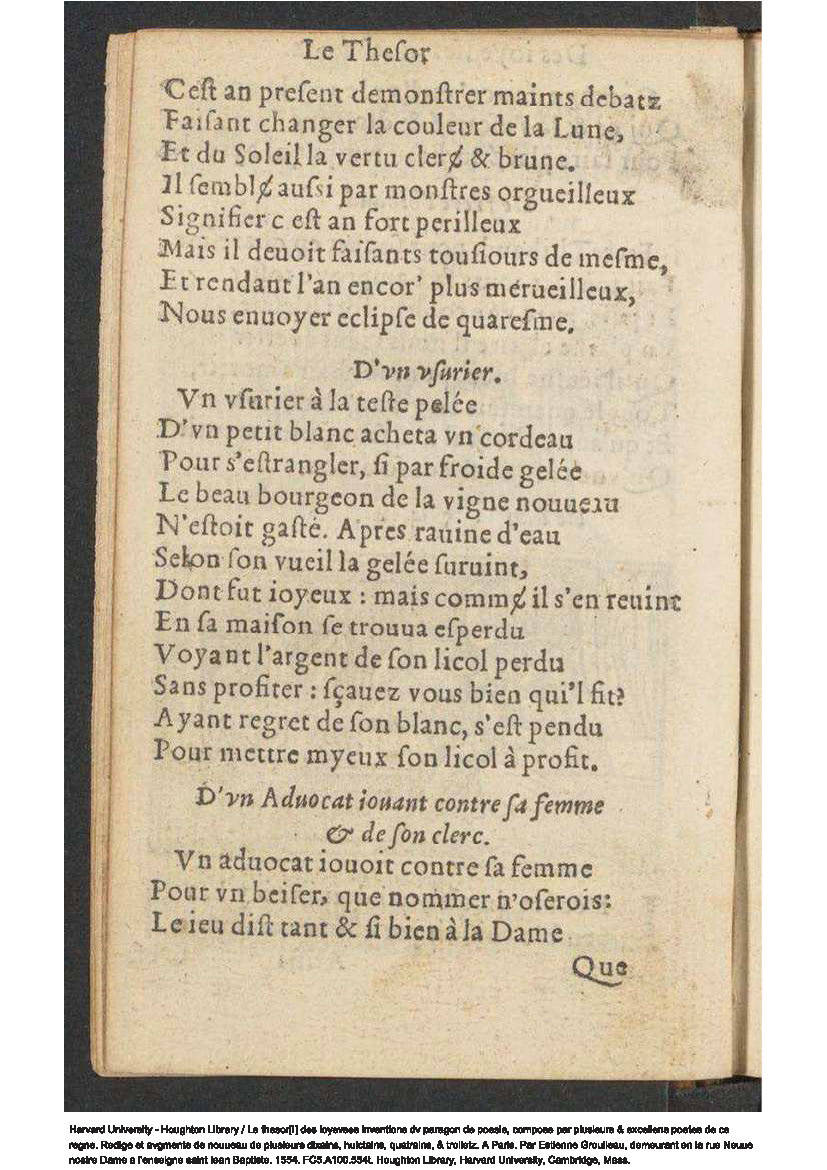 Le Theſor
C'eſt an preſent demonſtrer maints debatz
Faiſant changer la couleur de la Lune,
Et du Soleil la vertu clerɇ & brune.
Il ſemblɇ auſsi par monſtres orgueilleux
Signifier c eſt an fort perilleux
Mais il deuoit faiſants touſiours de meſme,
Et rendant l'an encor' plus merueilleux,
Nous enuoyer eclipſe de quareſme.
D'vn vſurier.
Vn vſurier à la teſte pelée
D'vn petit blanc acheta vn cordeau
Pour s'eſtrangler, ſi par froide gelée
Le beau bourgeon de la vigne nouueau
N'eſtoit gaſté. Apres rauine d'eau
Selon ſon vueil la gelée ſuruint,
Dont fut ioyeux : mais commɇ il s'en reuint
En ſa maiſon ſe trouua eſperdu
Voyant l'argent de ſon licol perdu
Sans profiter : ſçauez vous bien qui'l fit?
Ayant regret de ſon blanc, s'eſt pendu
Pour mettre myeux ſon licol à profit.
D'vn Aduocat iouant contre ſa femme
& de ſon clerc.
Vn aduocat iouoit contre ſa femme
Pour vn beiſer, que nommer n'oſerois:
Le ieu diſt tant & ſi bien à la Dame
Que
Harvard University - Houghton Library / Le thesor[!] des ioyevses inventions dv paragon de poesie, compose par plusieurs & excellens poetes de ce
regne. Redige et avgmente de nouueau de plusieurs dixains, huictains, quatrains, & trioletz. A Paris. Par Estienne Groulleau, demeurant en la rue Neuue
nostre Dame a l'enseigne saint Iean Baptiste. 1554. FC5.A100.554t. Houghton Library, Harvard University, Cambridge, Mass.